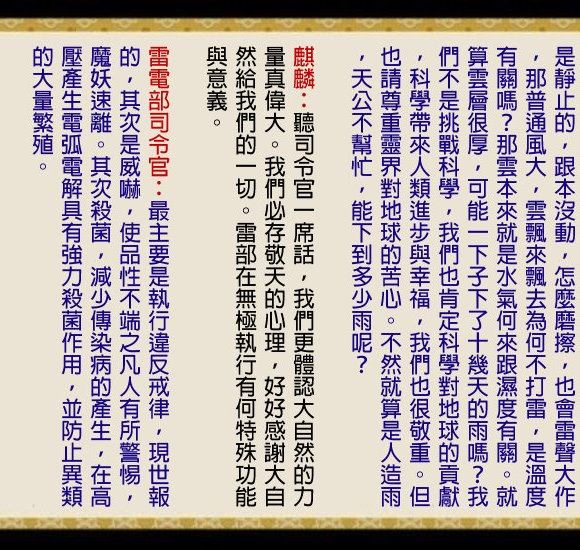 是靜止的，跟本沒動，怎麼磨擦，也會雷聲大作
，那普通風大，雲飄來飄去為何不打雷，是溫度
有關嗎？那雲本來就是水氣何來跟濕度有關。就
算雲層很厚，可能一下子下了十幾天的雨嗎？我
們不是挑戰科學，我們也肯定科學對地球的貢獻
，科學帶來人類進步與幸福，我們也很敬重。但
也請尊重靈界對地球的苦心。不然就算是人造雨
，天公不幫忙，能下到多少雨呢？
麒麟：聽司令官一席話，我們更體認大自然的力
量真偉大。我們必存敬天的心理，好好感謝大自
然給我們的一切。雷部在無極執行有何特殊功能
與意義。
雷電部司令官：最主要是執行違反戒律，現世報
的，其次是威嚇，使品性不端之凡人有所警惕，
魔妖速離。其次殺菌，減少傳染病的產生，在高
壓產生電弧電解具有強力殺菌作用，並防止異類
的大量繁殖。